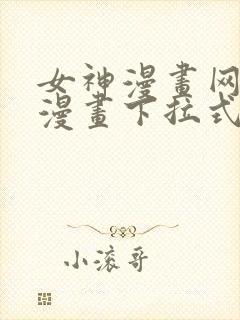 女神漫畫网
漫畫下拉式
小滚哥